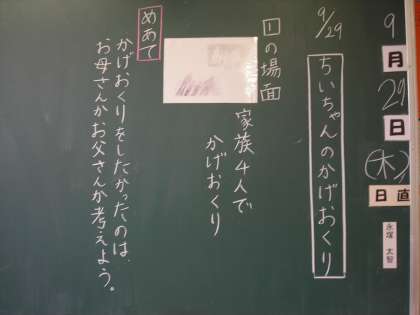 9月29日(木)
日直
永塚 太智
9/29
ちいちゃんのかげおくり
1の場面
家族4人で
かげおくり
めあて
かげおくりをしたかったのは、
お母さんかお父さんか考えよう。